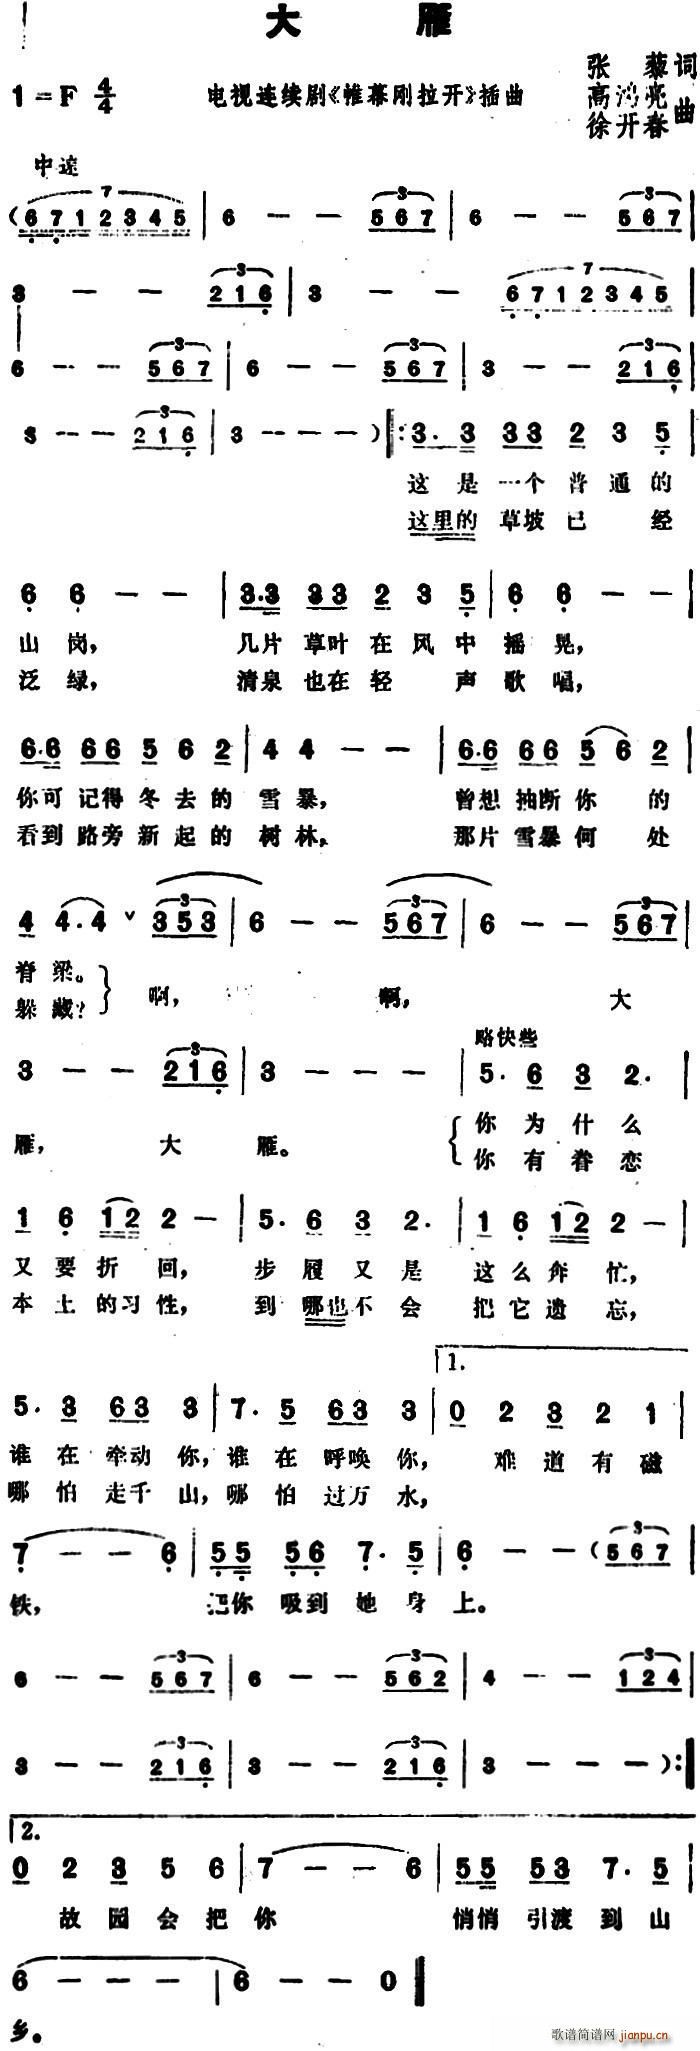 大 雁
张 藜 词
1 = F 4/4 电视连续剧《帷幕刚拉开》插曲 高鸿亮 曲
徐开春
中速
( 6 7 1 2 3 4 5 | 6 — — 5 6 7 | 6 — — 5 6 7 |
3 — — 2 1 6 | 3 — — 6 7 1 2 3 4 5
6 — — 5 6 7 | 6 — — 5 6 7 | 3 — — 2 1 6
3 — — 2 1 6 | 3 — — — ) ‖: 3. 3 3 3 2 3 5 |
这 是 一个 普 通 的
这里的 草坡 已 经
6 6 — — | 3. 3 3 3 2 3 5 | 6 6 — — |
山 岗, 几片 草叶 在 风 中 摇 晃,
泛 绿, 清泉 也在 轻 声 歌 唱,
6. 6 6 6 5 6 2 | 4 4 — — | 6. 6 6 6 5 6 2 |
你可 记得 冬 去 的 雪 暴, 曾想 抽断 你 的
看到 路旁 新 起 的 树 林, 那片 雪暴 何 处
4 4. 4 ∨ 3 5 3 | 6 — — 5 6 7 | 6 — — 5 6 7 |
脊 梁。
躲 藏?
啊, 啊, 大
略快些
3 — — 2 1 6 | 3 — — — | 5. 6 3 2. |
雁, 大 雁。
你 为 什 么
你 有 眷 恋
1 6 1 2 2 — | 5. 6 3 2. | 1 6 1 2 2 — |
又 要 折 回, 步 履 又 是 这 么 奔 忙,
本 土 的 习 性, 到 哪也 不 会 把 它 遗 忘,
1.
5. 3 6 3 3 | 7. 5 6 3 3 | 0 2 3 2 1 |
谁 在 牵动 你, 谁 在 呼唤 你, 难 道 有 磁
哪 怕 走千 山, 哪 怕 过万 水,
7 — — 6 | 5 5 5 5 6 7. 5 | 6 — — ( 5 6 7 |
铁, 把你 吸到 她 身 上。
6 — — 5 6 7 | 6 — — 5 6 2 | 4 — — 1 2 4 |
3 — — 2 1 6 | 3 — — 2 1 6 | 3 — — — ) :‖
2.
0 2 3 5 6 | 7 — — 6 | 5 5 5 5 3 7. 5 |
故 园 会 把 你 悄悄 引渡 到 山
6 — — — | 6 — — 0 ‖
乡。
歌谱简谱网 jianpu.cn